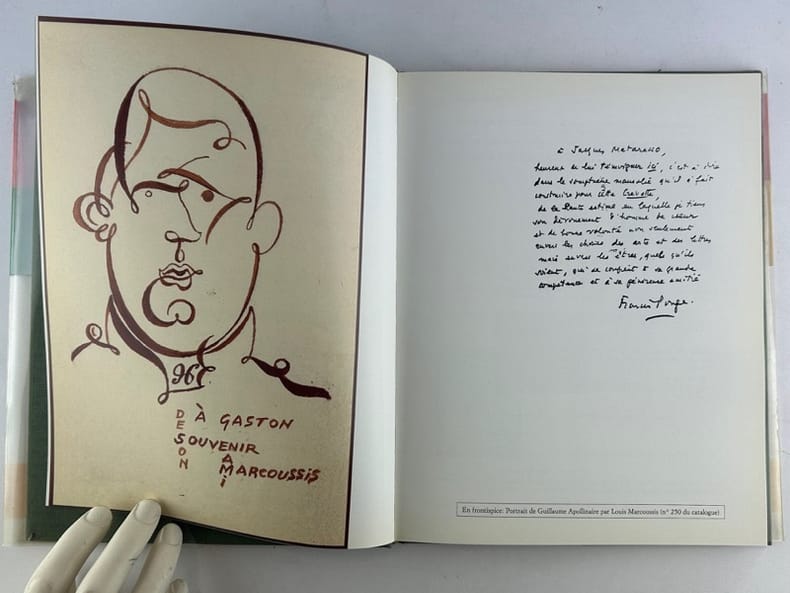 96E
À GASTON
DE SON
SOUVENIR
AMI
MARCOUSSIS
à Jacques Matarasso,
heureux de lui témoigner ici, c'est à dire
dans le somptueux mausolée qu'il a fait
construire pour cette Cravate,
de la haute estime en laquelle je tiens
son dévouement d'homme de cœur
et de bonne volonté non seulement
envers les choses des arts et des lettres
mais envers les êtres, quels qu'ils
soient, qui se confient à sa grande
compétence et à sa généreuse amitié
Francis Ponge.
En frontispice: Portrait de Guillaume Apollinaire par Louis Marcoussis (n° 250 du catalogue)